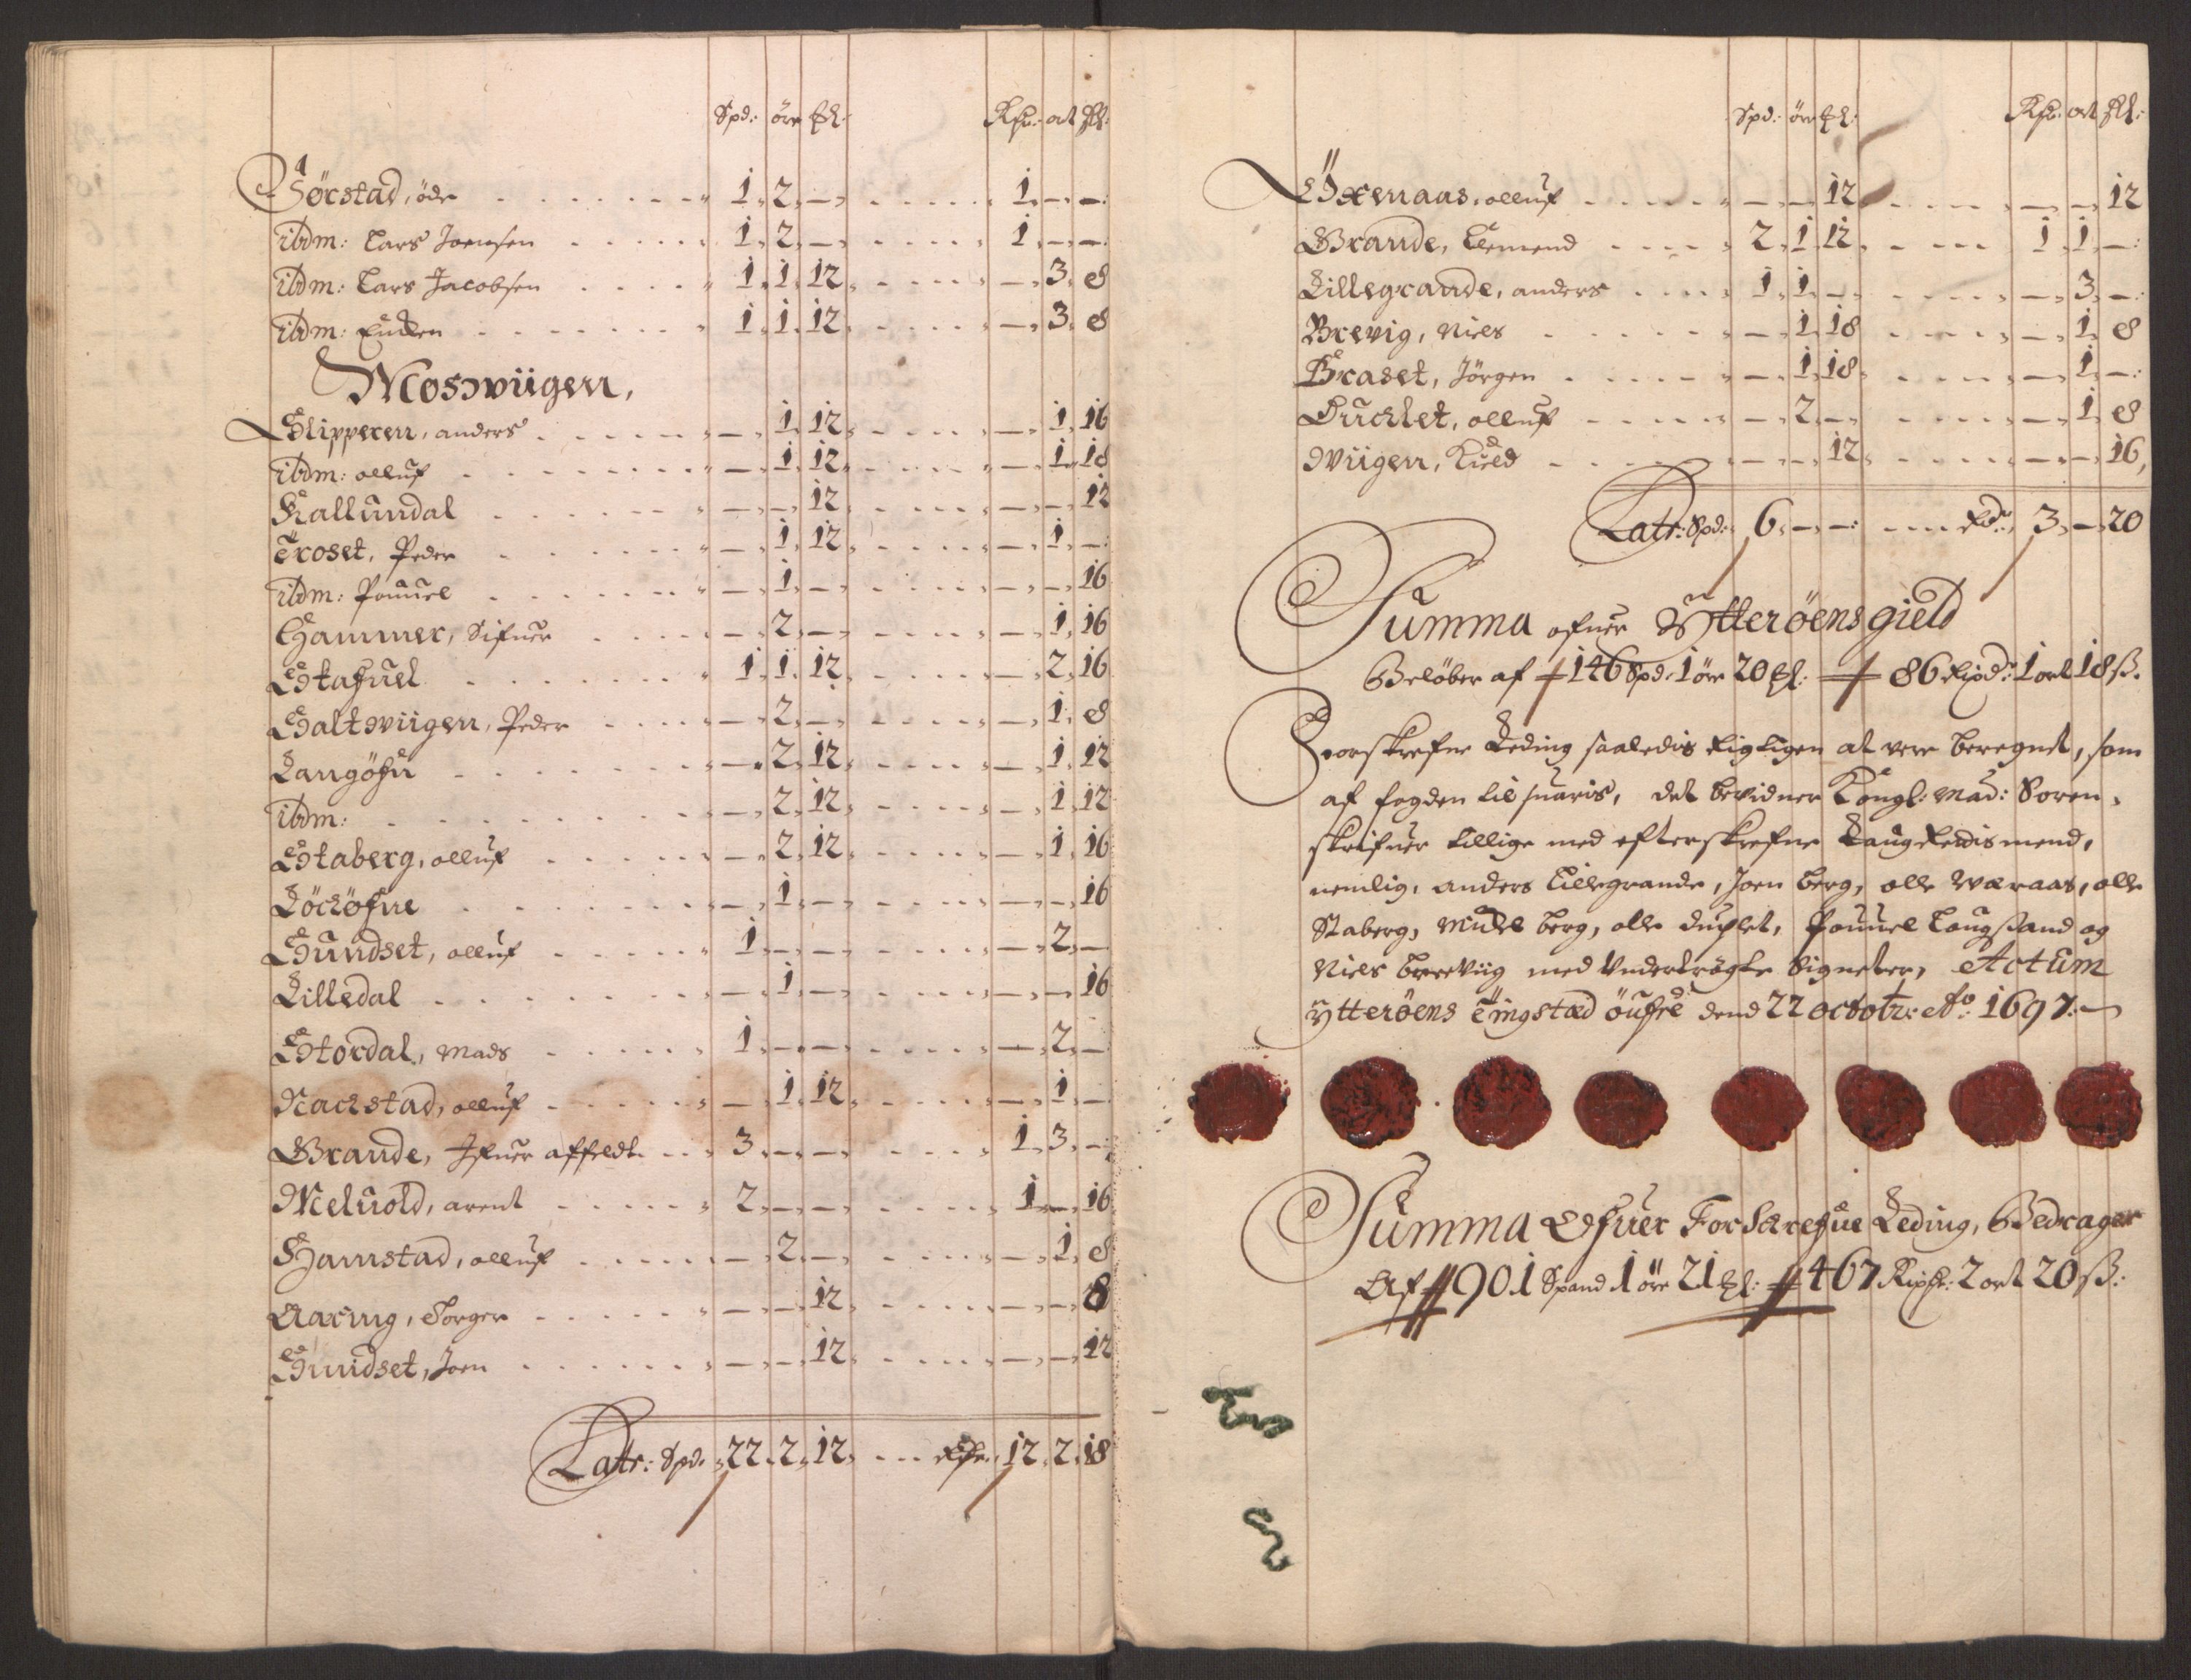 Spd: öre ₰: Rixdr: ort ß:
Hörstad, öde 1. 2. — 1. — —
ibdm: Lars Joensen 1. 2. — 1. — —
ibdm: Lars Jacobsen 1. 1. 12 — 3. 8
ibdm: Enken 1. 1. 12 — 3. 8
Mosswiigen,
Slipperen, anders — 1. 12 — 1. 16
ibdm: olluf — 1. 12 — 1. 18
Kallundal — — 12 — — 12
Troset, Peder — 1. 12 — 1. —
ibdm: Pouuel — 1. — — — 16
Hammer, Sifuer — 2. — — 1. 16
Stafuel 1. 1. 12 — 2. 16
Saltwiigen, Peder — 2. — — 1. 8
Langöfu — 2. 12 — 1. 12
ibdm: — 2. 12 — 1. 12
Staberg, olluf — 2. 12 — 1. 16
Löchöfue — 1. — — — 16
Sundset, olluf 1. — — — 2. —
Lilledal — 1. — — — 16
Stordal, Mads 1. — — — 2. —
Rachstad, olluf — 1. 12 — 1. —
Grande, Ifuer affeldt 3. — — 1. 3. —
Meluold, arent 2. — — 1. — 16
Hamstad, olluf — 2. — — 1. 8
Aaring, Torger — — 12 — — 8
Sundset, Joen — — 12 — — 12
Latr: Spd: 22. 2. 12. Rixdr: 12. 2. 18
Spd: öre ₰: Rixdr: ort ß:
Öxenaas, olluf — — 12 — — 12
Grande, Clemend 2. 1. 12 1. 1. —
Lillegrande, anders 1. 1. — — 3. —
Brevig, Niels — 1. 18 — 1. 8
Braset, Jörgen — 1. 18 — 1. —
Duchlet, olluf — 2. — — 1. 8
Wiigen, Kield — — 12 — — 16,
Latr: Spd: 6. — — Rdr: 3. — 20
Summa ofuer Ytteröens gield
Beløber af 146 Spd: 1 öre 20 ₰: 86 Rixdr: 1 ort 18 ß.
Forskrefne Leding saaledis rigtigen at vere beregnet, som
af fogden til suaris, det bevidner Kongl: Mad: Soren,
skrifuer tillige med efterskrefne Laugrettismend,
nemlig, anders Lillegrande, Joen berg, olle Wæraas, olle
Staberg, Mickel berg, olle duchlet, Pouuel Laugsand og
Niels breviig med Undertrögte Signeter, Actum
Ytteröens Tingsted öufre dend 22 octobr: Ao: 1697.
Summa Ofuer Forskrefue Leding, Bedrager
Af 901 Spand 1 öre 21 ₰: 467 Rixdr: 2 ort 20 ß: